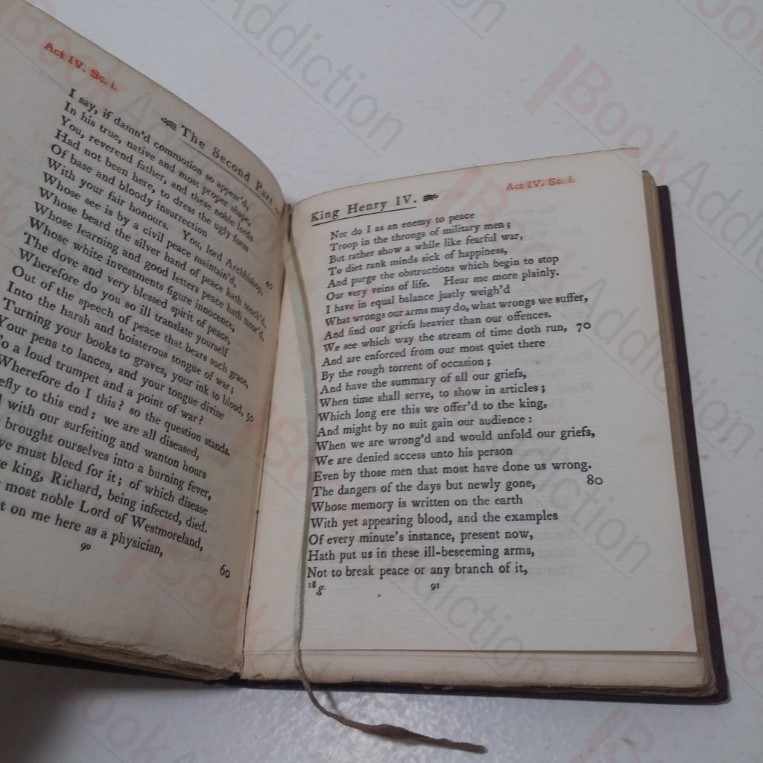 Act IV. Sc. i.
The Second Part of
I say, if damn'd commotion so appear'd,
In his true, native and most proper shape,
You, reverend father, and these noble lords
Had not been here, to dress the ugly form
Of base and bloody insurrection
With your fair honours. You, lord Archbishop,
Whose see is by a civil peace maintain'd, 40
Whose beard the silver hand of peace hath touch'd,
Whose learning and good letters peace hath tutor'd,
Whose white investments figure innocence,
The dove and very blessed spirit of peace,
Wherefore do you so ill translate yourself
Out of the speech of peace that bears such grace,
Into the harsh and boisterous tongue of war;
Turning your books to graves, your ink to blood, 50
Your pens to lances, and your tongue divine
To a loud trumpet and a point of war?
Wherefore do I this? so the question stands.
efly to this end: we are all diseased,
with our surfeiting and wanton hours
brought ourselves into a burning fever,
we must bleed for it; of which disease
king, Richard, being infected, died.
most noble Lord of Westmoreland,
t on me here as a physician, 60
90
King Henry IV.
Act IV. Sc. i.
Nor do I as an enemy to peace
Troop in the throngs of military men;
But rather show a while like fearful war,
To diet rank minds sick of happiness,
And purge the obstructions which begin to stop
Our very veins of life. Hear me more plainly.
I have in equal balance justly weigh'd
What wrongs our arms may do, what wrongs we suffer,
And find our griefs heavier than our offences.
We see which way the stream of time doth run, 70
And are enforced from our most quiet there
By the rough torrent of occasion;
And have the summary of all our griefs,
When time shall serve, to show in articles;
Which long ere this we offer'd to the king,
And might by no suit gain our audience:
When we are wrong'd and would unfold our griefs,
We are denied access unto his person
Even by those men that most have done us wrong.
The dangers of the days but newly gone, 80
Whose memory is written on the earth
With yet appearing blood, and the examples
Of every minute's instance, present now,
Hath put us in these ill-beseeming arms,
Not to break peace or any branch of it,
18 g
91
BookAddiction